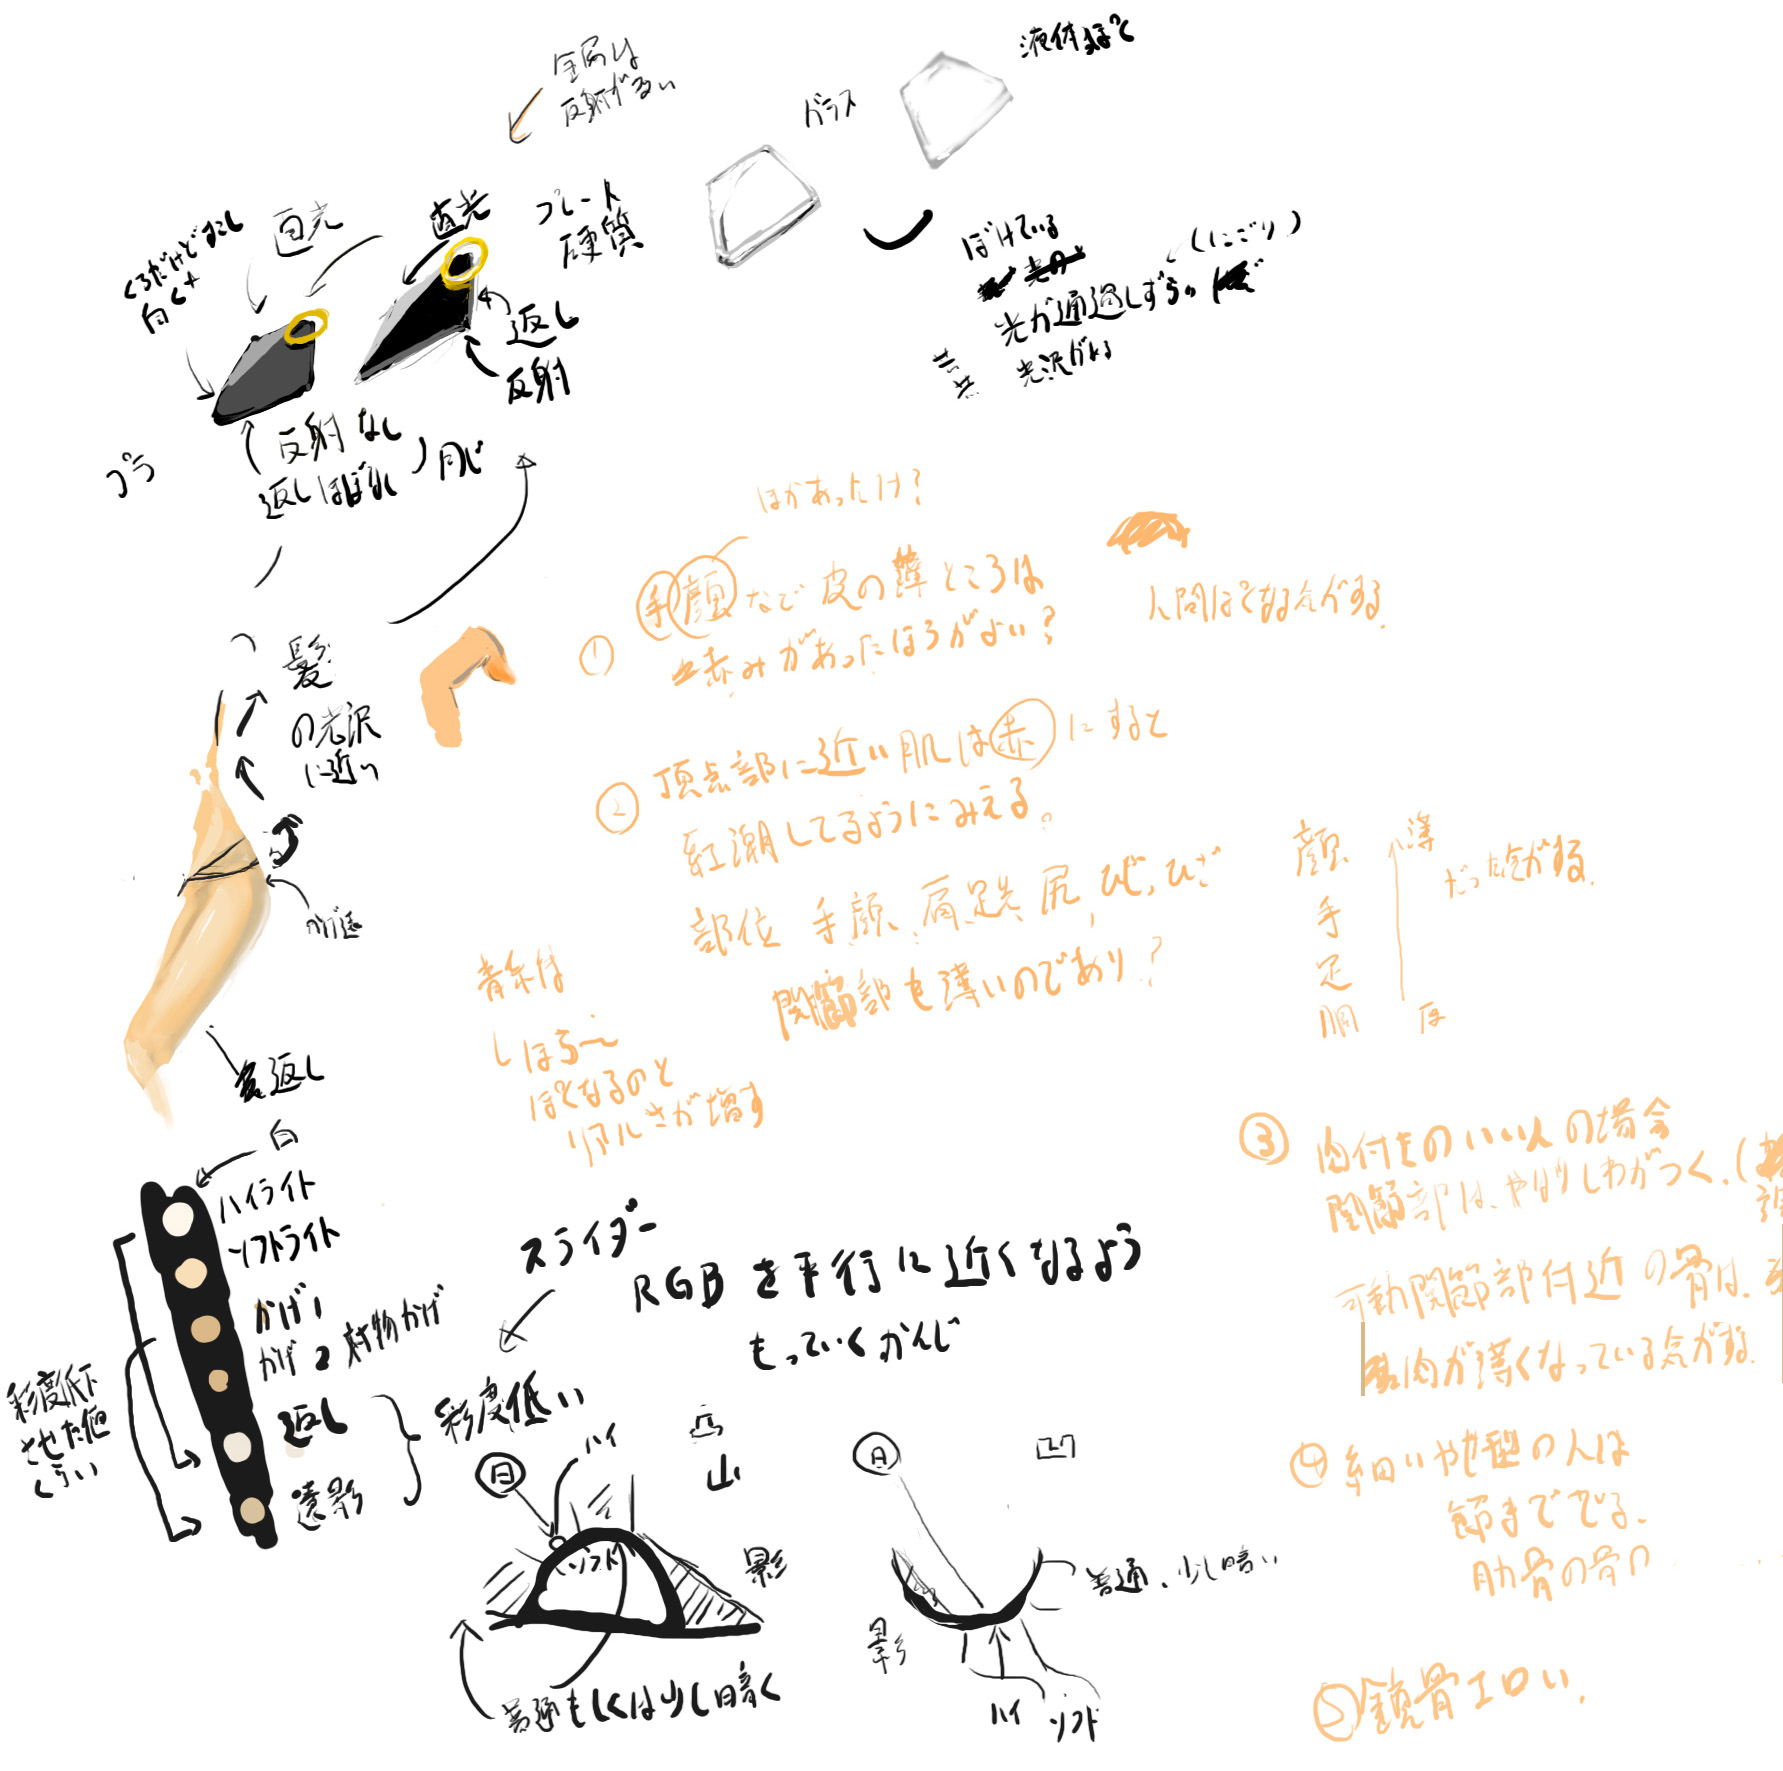 金属は
反射がない
ガラス
液体ぽく
直光
直光
プレート
硬質
くろだけどすこし
白く+
返し
反射
反射なし
返しほぼなし
同じ
プラ
ぼけている
光の
(にごり)
光が通過しずらい
光沢がある
髪
の光沢
に近い
返し
白
ハイライト
ソフトライト
かげ1
かげ2 対物かげ
返し
遠影
彩度低い
彩度低下
させた値
くらい
スライダー
RGBを平行に近くなるよう
もっていくかんじ
日
ハイ
凸
山
ソフト
影
普通もしくは少し暗く
日
凹
普通、少し暗い
影
ハイ
ソフト
ほかあったけ?
① 手顔など皮の薄ところは
赤みがあったほうがよい?
人間ぽくなる気がする.
② 頂点部に近い肌は赤にすると
紅潮してるようにみえる。
部位 手、顔、肩、足先、尻、ひじ、ひざ
関節部も薄いのであり?
顔
手
足
胴
薄
厚
だった気がする.
青系は
ぽくなるのと
リアルさが増す
③ 肉付きのいい人の場合
関節部は、やはりしわがつく.(
可動関節部付近の骨は、
肉が薄くなっている気がする.
④ 細いやせ型の人は
節まででる.
肋骨の骨
⑤ 鎖骨エロい.